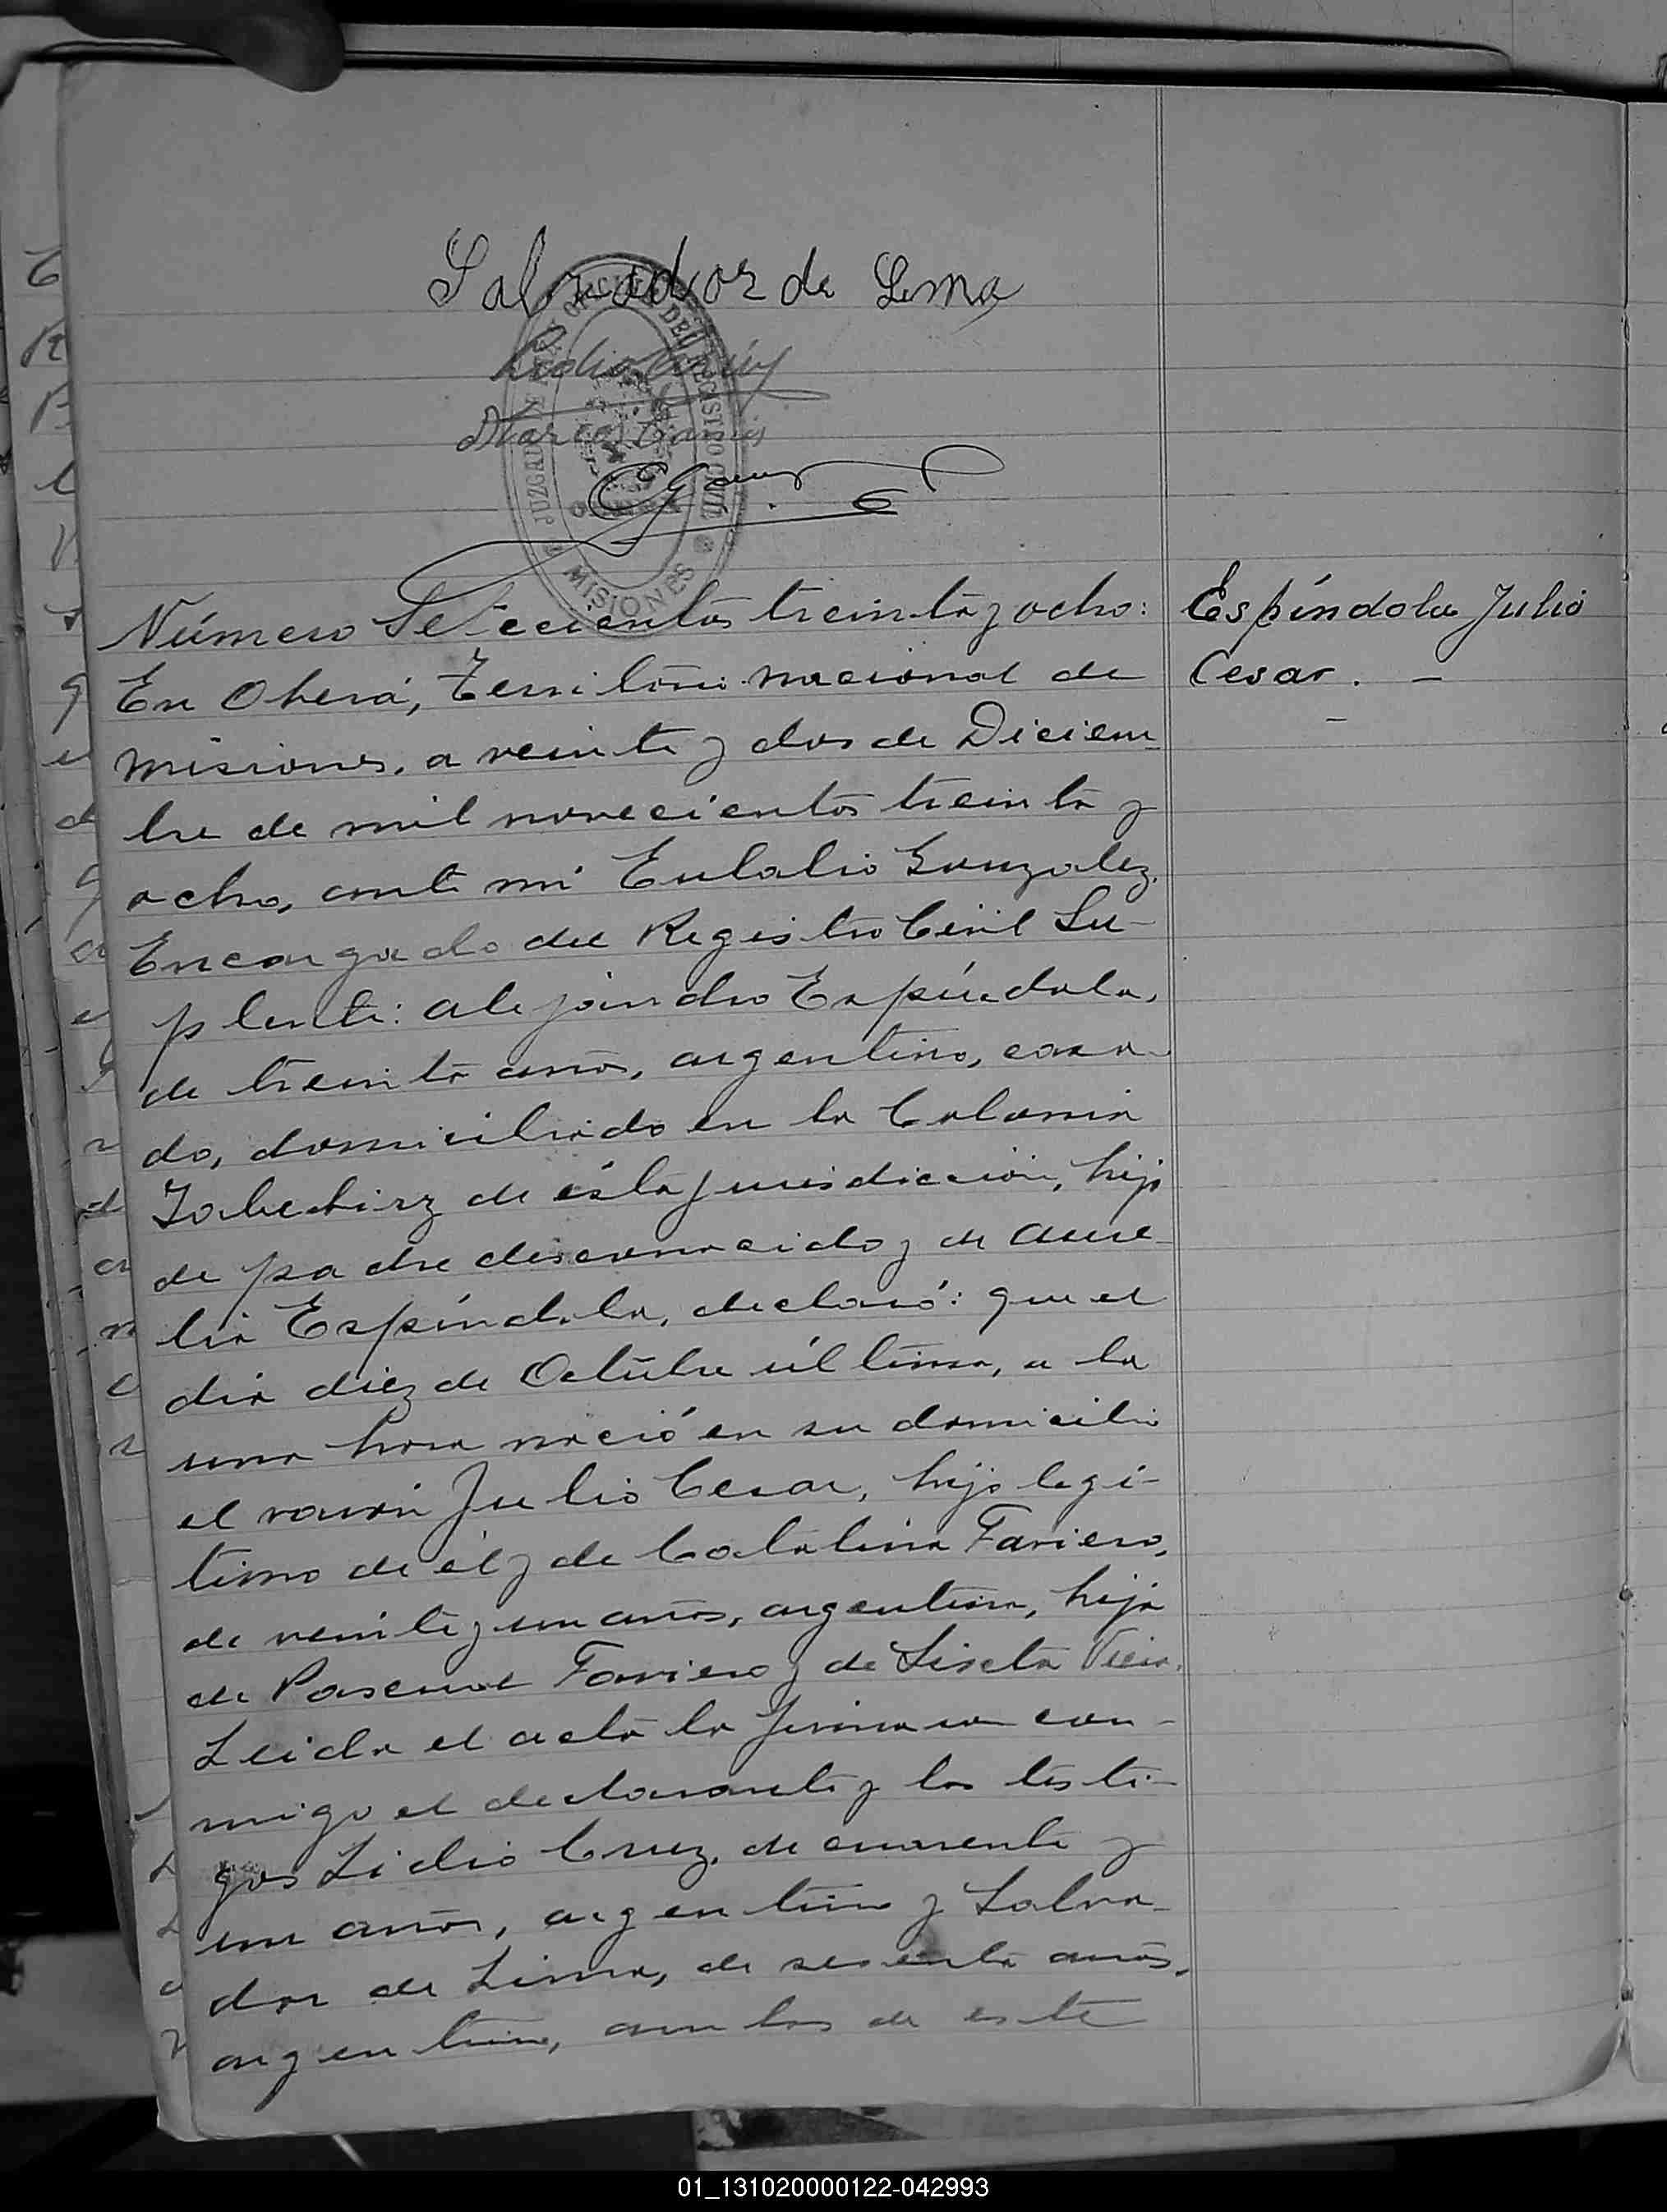 Salvador de Lima
Lidio Cruz
Marcos
EGonz
JUZGADO DE PAZ Y OFICINA DEL REGISTRO CIVIL
OBERÁ
MISIONES
Número Setecientos treinta y ocho:
En Oberá, Territorio nacional de
Misiones, a veinte y dos de Diciem-
bre de mil novecientos treinta y
ocho, ante mi Eulalio Gonzalez,
Encargado del Registro Civil Su-
plente: Alejandro Espíndola,
de treinta años, argentino, casa-
do, domiciliado en la Colonia
Yabebiry de ésta jurisdicción, hijo
de padre desconocido y de Aure-
lia Espíndola, declaró: que el
dia diez de Octubre último, a la
una hora nació en su domicilio
el varón Julio Cesar, hijo legí-
timo de él y de Catalina Fariero,
de veinte y un años, argentina, hija
de Pascual Fariero y de Liseta Vieir.
Leida el acta la firmaron con-
migo el declarante y los testi-
gos Lidio Cruz, de cuarenta y
un años, argentino y Salva-
dor de Lima, de sesenta años,
argentino, ambos de este
Espíndola Julio
Cesar. -
01_131020000122-042993